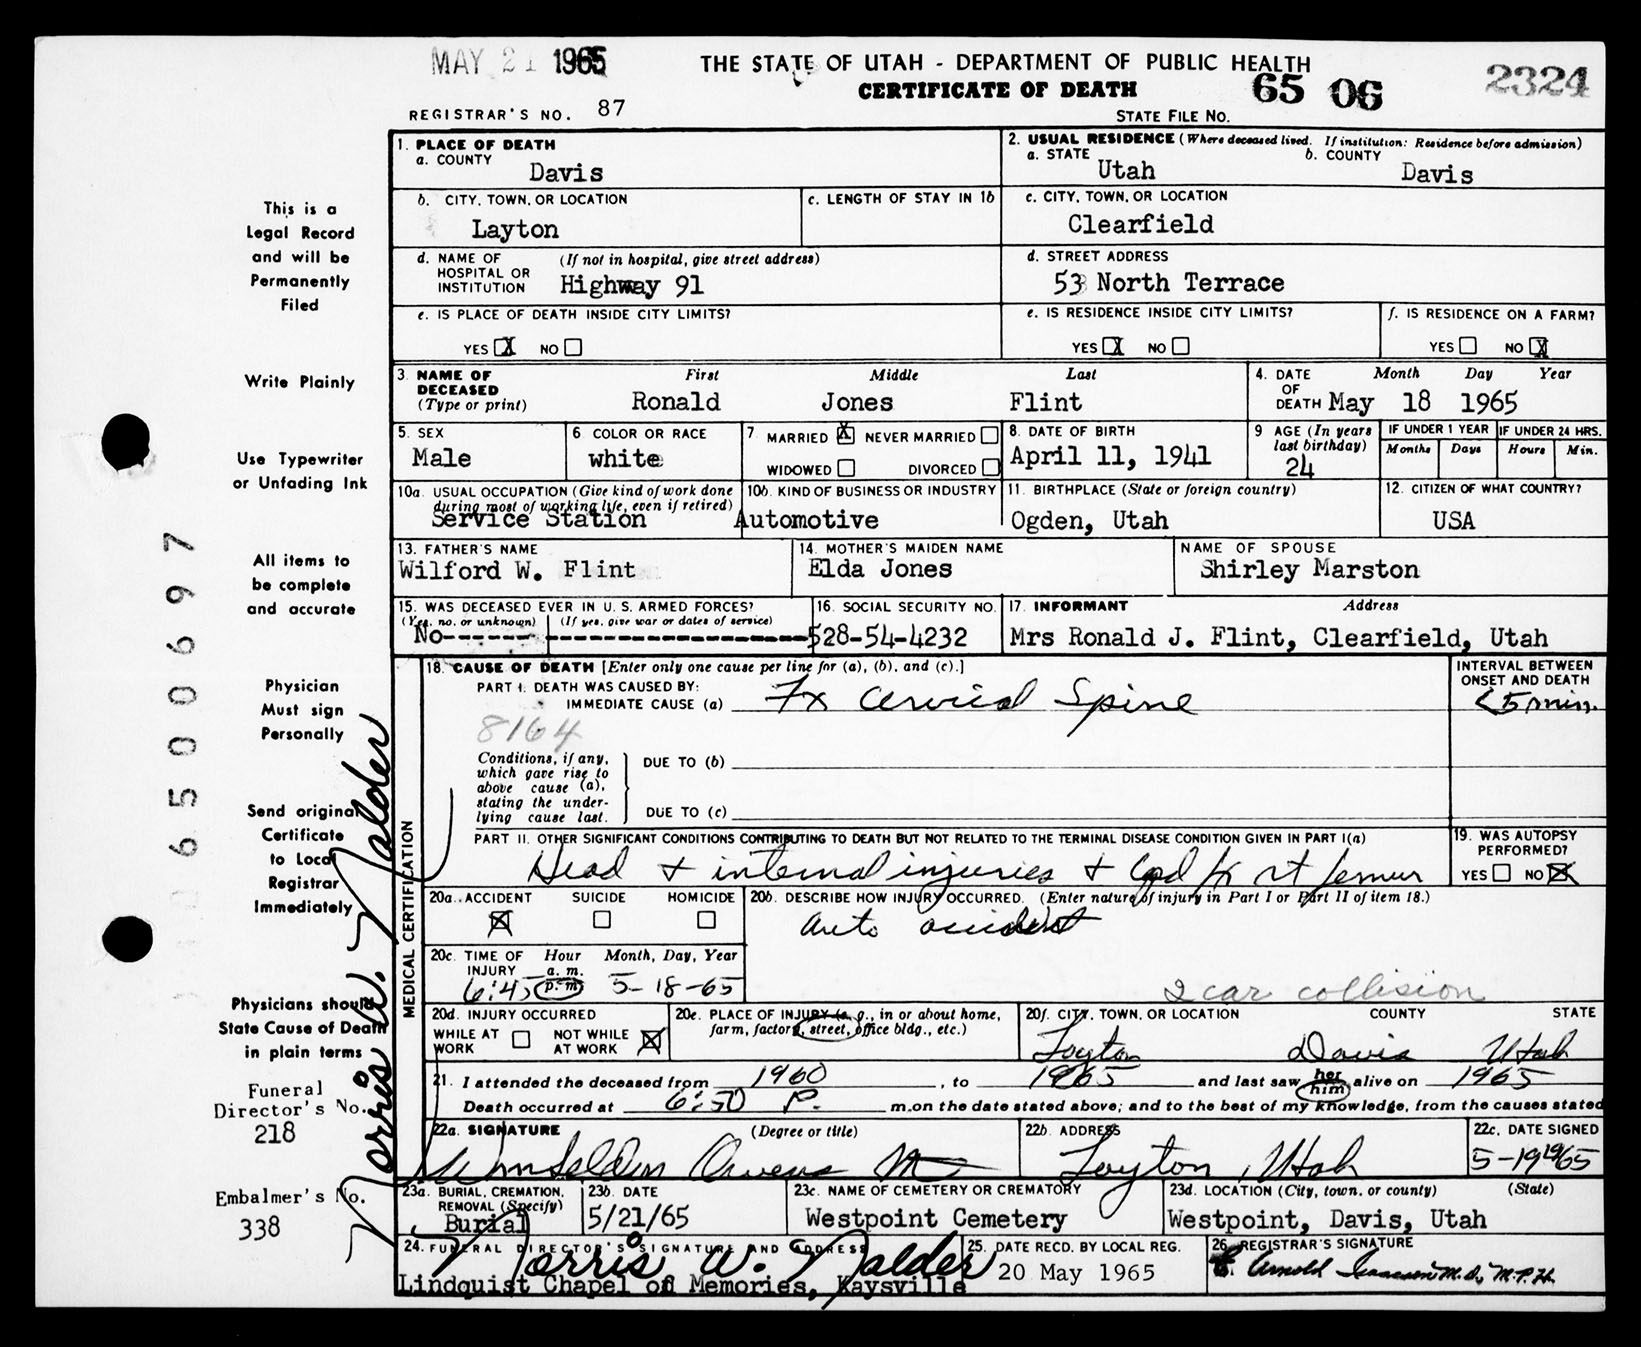 MAY 21 1965
THE STATE OF UTAH - DEPARTMENT OF PUBLIC HEALTH
CERTIFICATE OF DEATH
65 06 2324
REGISTRAR'S NO. 87
STATE FILE NO.
This is a
Legal Record
and will be
Permanently
Filed
Write Plainly
Use Typewriter
or Unfading Ink
All items to
be complete
and accurate
Physician
Must sign
Personally
Send original
Certificate
to Local
Registrar
Immediately
Physicians should
State Cause of Death
in plain terms
Funeral
Director's No.
218
Embalmer's No.
338
Norris W. Nalder
650069 7
1. PLACE OF DEATH
a. COUNTY
Davis
2. USUAL RESIDENCE (Where deceased lived. If institution: Residence before admission)
a. STATE
Utah
b. COUNTY
Davis
b. CITY, TOWN, OR LOCATION
Layton
c. LENGTH OF STAY IN 1b
c. CITY, TOWN, OR LOCATION
Clearfield
d. NAME OF HOSPITAL OR INSTITUTION
(If not in hospital, give street address)
Highway 91
d. STREET ADDRESS
53 North Terrace
e. IS PLACE OF DEATH INSIDE CITY LIMITS?
YES X NO
e. IS RESIDENCE INSIDE CITY LIMITS?
YES X NO
f. IS RESIDENCE ON A FARM?
YES NO X
3. NAME OF DECEASED
(Type or print)
First Middle Last
Ronald Jones Flint
4. DATE OF DEATH
Month Day Year
May 18 1965
5. SEX
Male
6 COLOR OR RACE
white
7. MARRIED X NEVER MARRIED
WIDOWED DIVORCED
8. DATE OF BIRTH
April 11, 1941
9 AGE (In years last birthday)
24
IF UNDER 1 YEAR
Months Days
IF UNDER 24 HRS.
Hours Min.
10a. USUAL OCCUPATION (Give kind of work done during most of working life, even if retired)
Service Station
10b. KIND OF BUSINESS OR INDUSTRY
Automotive
11. BIRTHPLACE (State or foreign country)
Ogden, Utah
12. CITIZEN OF WHAT COUNTRY?
USA
13. FATHER'S NAME
Wilford W. Flint
14. MOTHER'S MAIDEN NAME
Elda Jones
NAME OF SPOUSE
Shirley Marston
15. WAS DECEASED EVER IN U.S. ARMED FORCES?
(Yes, no, or unknown) (If yes, give war or dates of service)
No-------
16. SOCIAL SECURITY NO.
528-54-4232
17. INFORMANT Address
Mrs Ronald J. Flint, Clearfield, Utah
MEDICAL CERTIFICATION
18. CAUSE OF DEATH [Enter only one cause per line for (a), (b), and (c).]
PART I. DEATH WAS CAUSED BY:
IMMEDIATE CAUSE (a) Fx Cervical Spine
INTERVAL BETWEEN ONSET AND DEATH
<5 min.
8164
Conditions, if any, which gave rise to above cause (a), stating the underlying cause last.
DUE TO (b)
DUE TO (c)
PART II. OTHER SIGNIFICANT CONDITIONS CONTRIBUTING TO DEATH BUT NOT RELATED TO THE TERMINAL DISEASE CONDITION GIVEN IN PART I(a)
Head + internal injuries + Cpd fx rt femur
19. WAS AUTOPSY PERFORMED?
YES NO X
20a. ACCIDENT SUICIDE HOMICIDE
X
20b. DESCRIBE HOW INJURY OCCURRED. (Enter nature of injury in Part I or Part II of item 18.)
auto accident
2 car collision
20c. TIME OF INJURY
Hour Month, Day, Year
a. m.
p. m.
6:45 5-18-65
20d. INJURY OCCURRED
WHILE AT WORK NOT WHILE AT WORK X
20e. PLACE OF INJURY (e. g., in or about home, farm, factory, street, office bldg., etc.)
20f. CITY, TOWN, OR LOCATION COUNTY STATE
Layton Davis Utah
21. I attended the deceased from 1960, to 1965 and last saw her him alive on 1965
Death occurred at 6:50 P. m. on the date stated above; and to the best of my knowledge, from the causes stated
22a. SIGNATURE (Degree or title)
Wm Selden Owens MD
22b. ADDRESS
Layton, Utah
22c. DATE SIGNED
5-19 1965
23a. BURIAL, CREMATION, REMOVAL (Specify)
Burial
23b. DATE
5/21/65
23c. NAME OF CEMETERY OR CREMATORY
Westpoint Cemetery
23d. LOCATION (City, town, or county) (State)
Westpoint, Davis, Utah
24. FUNERAL DIRECTOR'S SIGNATURE AND ADDRESS
Norris W. Nalder
Lindquist Chapel of Memories, Kaysville
25. DATE RECD. BY LOCAL REG.
20 May 1965
26. REGISTRAR'S SIGNATURE
E. Arnold Isaacson M.D., M.P.H.